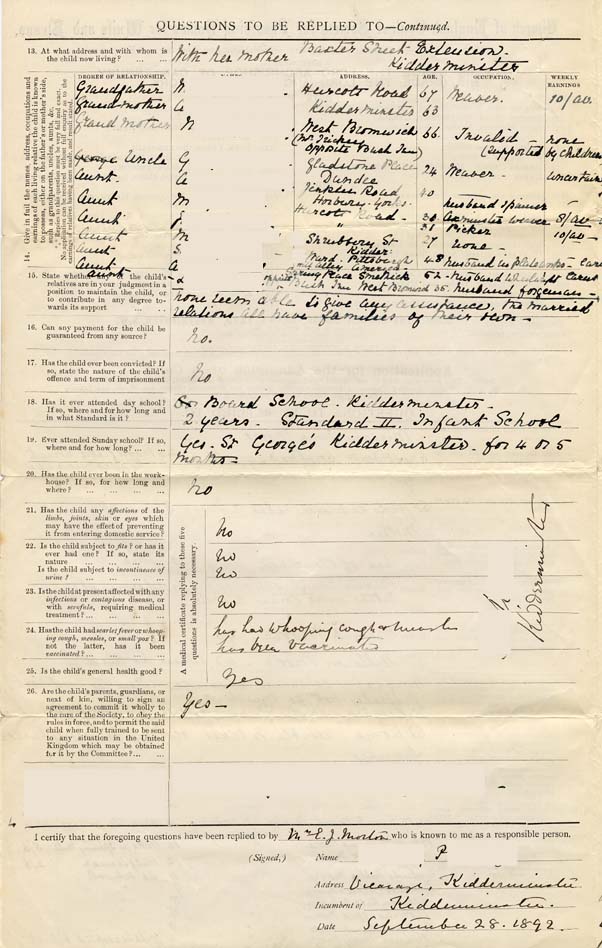 QUESTIONS TO BE REPLIED TO—Continued.
13. At what address and with whom is
the child now living? ... ...
With her mother Baxter Street Extension.
Kidderminster
14. Give in full the names, address, occupations and
earnings of each living relative the child is known
to possess, either on the father's or mother's side,
such as grandparents, uncles, aunts, &c.
DEGREE OF RELATIONSHIP. ADDRESS. AGE. OCCUPATION. WEEKLY EARNINGS
Grandfather N Hurcott Road 67 Weaver. 10/av.
Grandmother A Kidderminster 63
Grandmother N West Bromwich 66 Invalid - none
opposite Bush Inn) (supported by children
George Uncle G Gladstone Place 24 Weaver uncertain
Aunt. A Dundee
Aunt M Jenkin Road, 40 husband spinner
Horbury. Yorks.
Aunt S Hurcott Road. 30 Axminster weaver 8/av
Aunt M 21 Picker 10/av
Aunt S. Shrubbery St 27 None
Kidder:
Aunt A 48 husband in
Aunt 52 - husband
Bush Inn West Bromwich 35. husband forgeman -
15. State whether any of the child's
relatives are in your judgment in a
position to maintain the child, or
to contribute in any degree to-
wards its support ... ...
none seem able to give any assistance, the married
relations all have families of their own -
16. Can any payment for the child be
guaranteed from any source?
no.
17. Has the child ever been convicted? If
so, state the nature of the child's
offence and term of imprisonment
No
18. Has it ever attended day school?
If so, where and for how long and
in what Standard is it?
Board School. Kidderminster.
2 years. Standard II. Infant School
19. Ever attended Sunday school? If so,
where and for how long? ... ...
Yes. St George's Kidderminster. for 4 or 5
months -
20. Has the child ever been in the work-
house? If so, for how long and
where? ... ... ... ...
No
A medical certificate replying to these five
questions is absolutely necessary.
21. Has the child any affections of the
limbs, joints, skin or eyes which
may have the effect of preventing
it from entering domestic service?
No
22. Is the child subject to fits? or has it
ever had one? If so, state its
nature ... ... ... ...
No
Is the child subject to incontinence of
urine? ... ... ... ...
No
23. Is the child at present affected with any
infectious or contagious disease, or
with scrofula, requiring medical
treatment? ... ... ... ...
No
Kidderminster
24. Has the child had scarlet fever or whoop-
ing cough, measles, or small pox? If
not the latter, has it been
vaccinated? ... ... ... ...
has had whooping cough & measles
has been vaccinated
25. Is the child's general health good?
Yes
26. Are the child's parents, guardians, or
next of kin, willing to sign an
agreement to commit it wholly to
the care of the Society, to obey the
rules in force, and to permit the said
child when fully trained to be sent
to any situation in the United
Kingdom which may be obtained
for it by the Committee? ... ...
Yes -
I certify that the foregoing questions have been replied to by Mr E. J. Morton who is known to me as a responsible person.
(Signed,) Name P
Address Vicarage, Kidderminster
Incumbent of Kidderminster.
Date September 28. 1892.